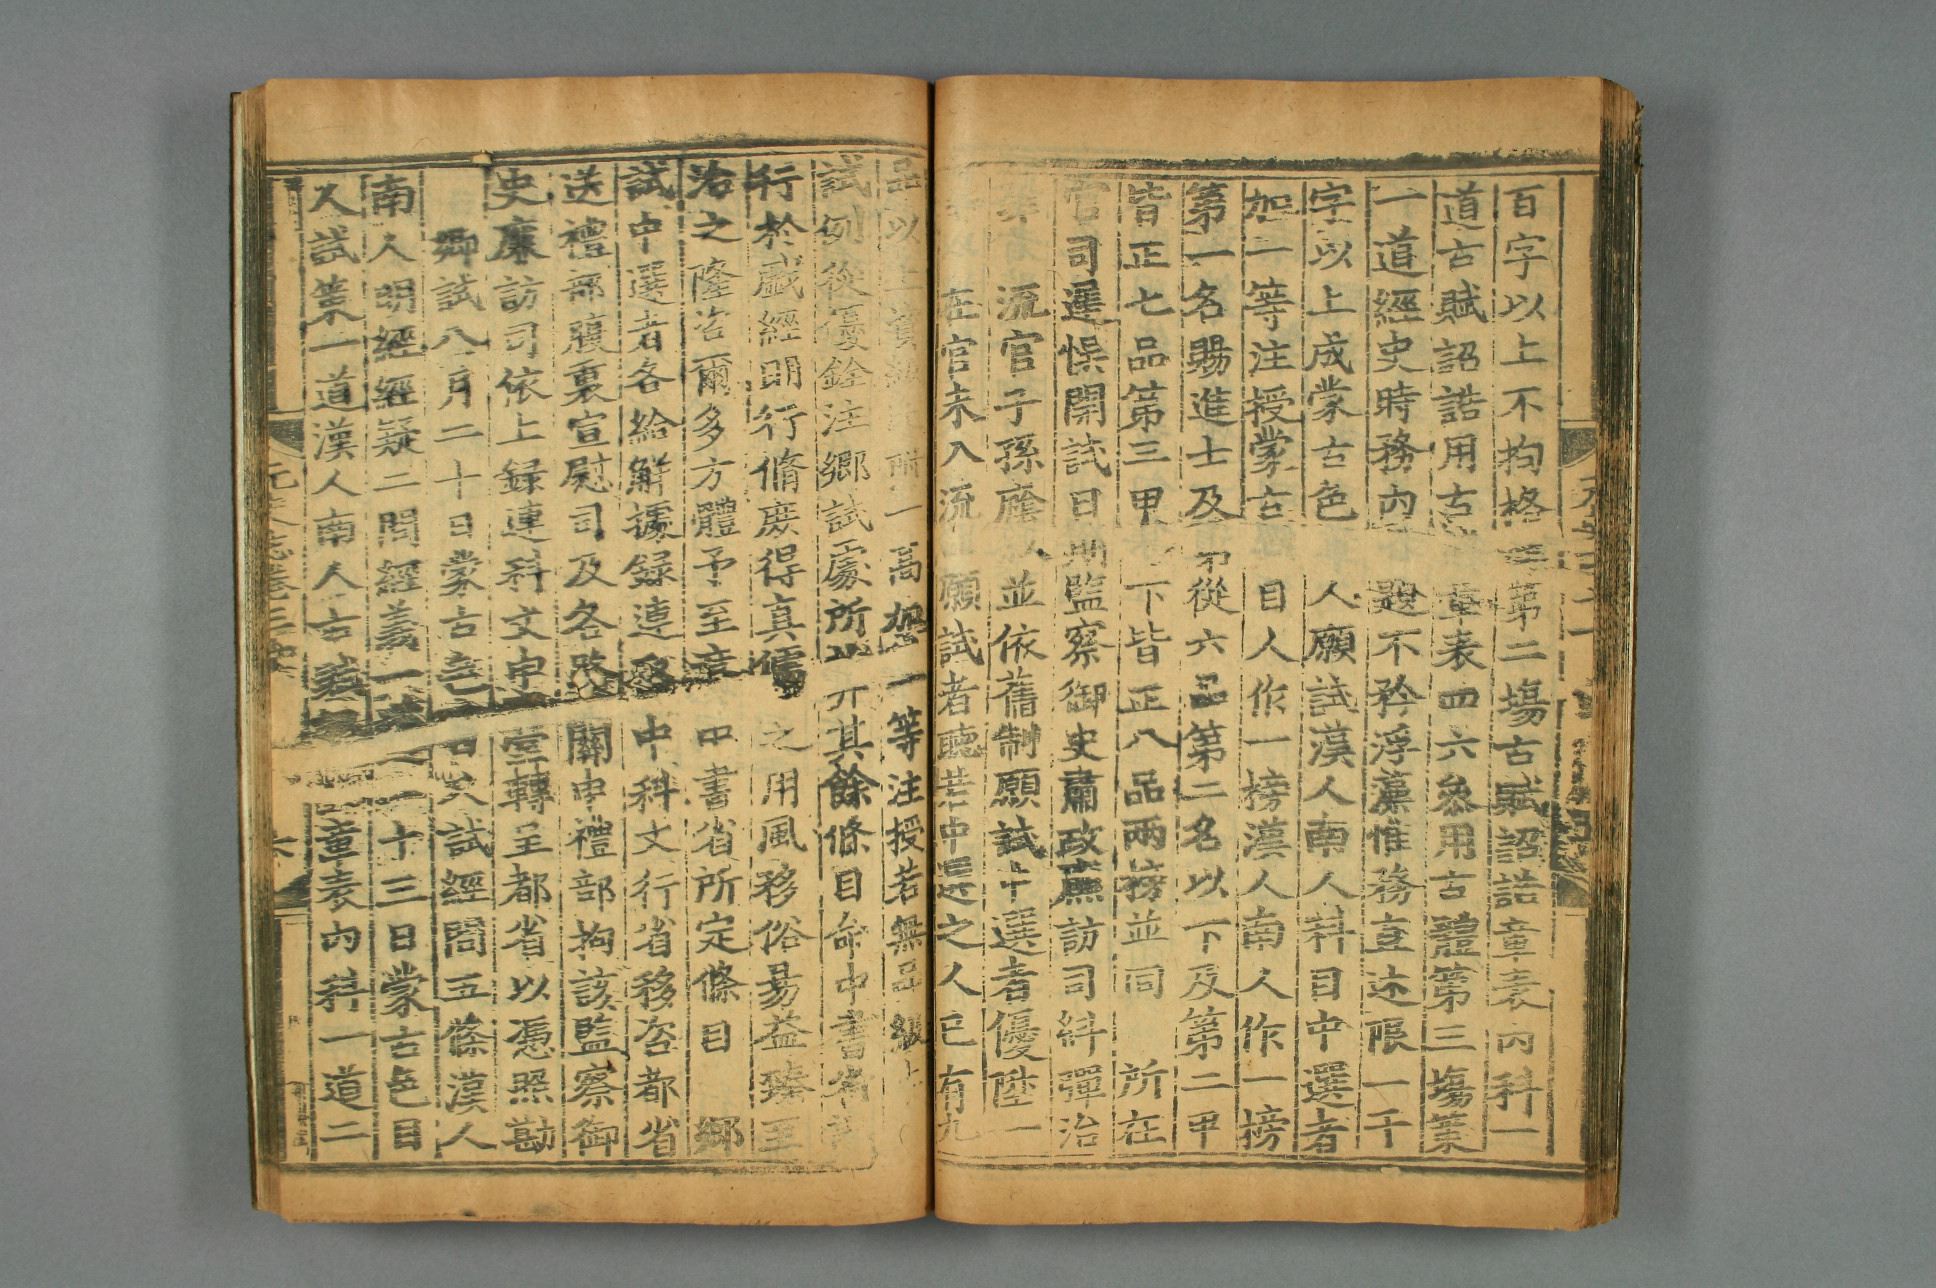 百字以上不拘格 第二場古賦詔誥章表內科一
道古賦詔誥用古 章表四六參用古體第三場策
一道經史時務內 題不矜浮藻惟務直述限一千
字以上成蒙古色 人願試漢人南人科目中選者
加一等注授蒙古 目人作一榜漢人南人作一榜
第一名賜進士及 從六品第二名以下及第二甲
皆正七品第三甲 下皆正八品兩榜並同 所在
官司遲悞開試日期監察御史肅政廉訪司糾彈治
罪 流官子孫廕 並依舊制願試中選者優陞一
在官未入流 願試者聽若中選之人已有九
品以上 一高加一等注授若無品級
試例從優銓注鄉試處所并其餘條目命中書省
行於戲經明行脩庶得真儒之用風移俗易益臻至
治之隆咨爾多方體予至意 中書省所定條目 鄉
試中選者各給解據錄連 中科文行省移咨都省
送禮部腹裏宣慰司及各路關申禮部拘該監察御
史廉訪司依上錄連科文申 臺轉呈都省以憑照勘
鄉試八月二十日蒙古 目人試經問五條漢人
南人明經經疑二問經義一道 二十三日蒙古色目
人試策一道漢人南人古賦 章表內科一道二
元史志卷三
六